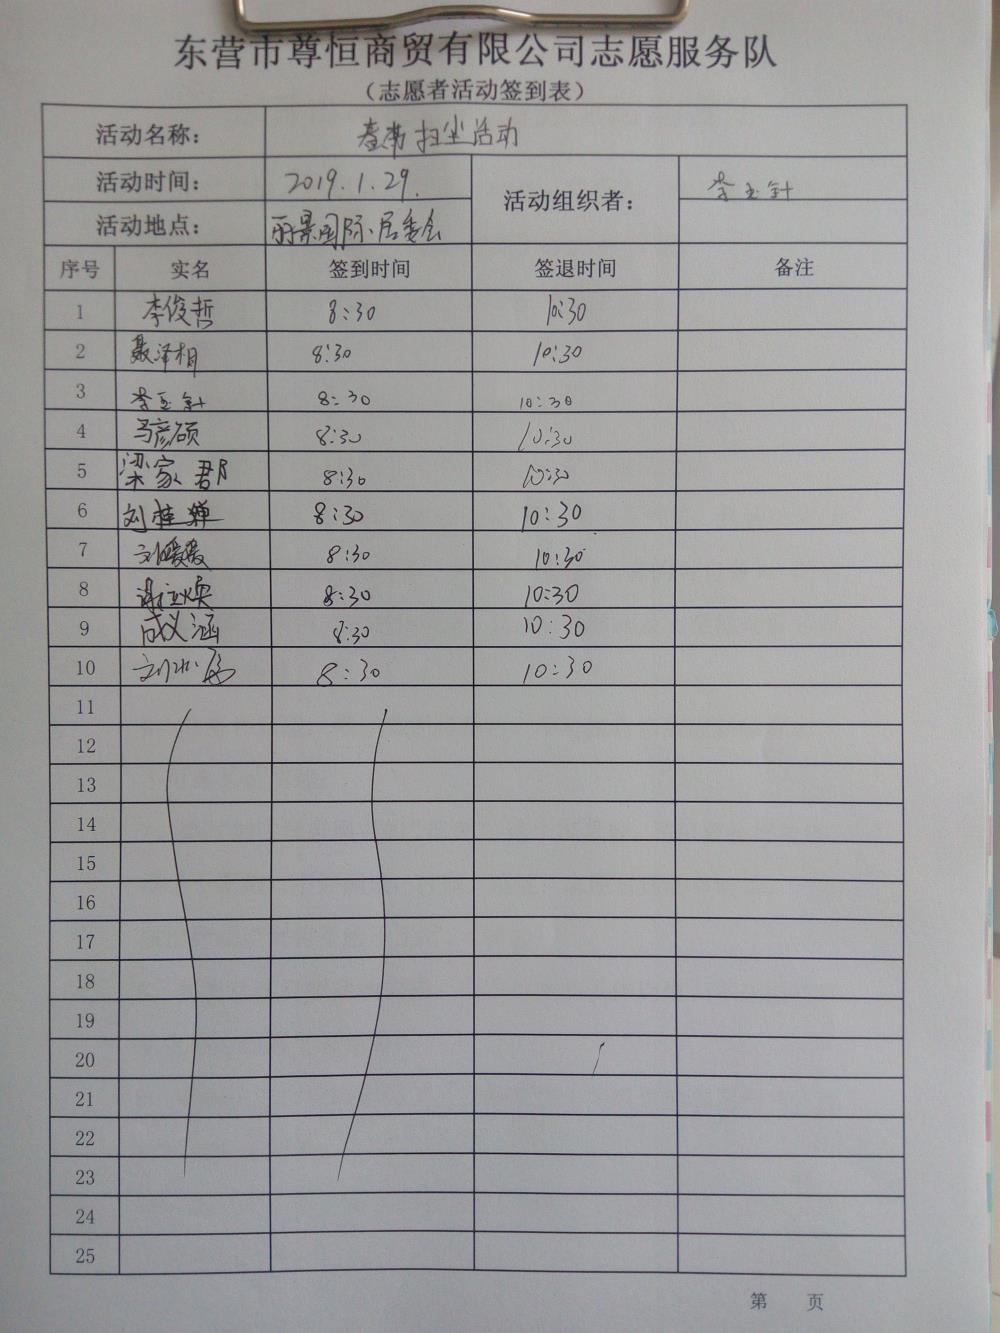 东营市尊恒商贸有限公司志愿服务队
（志愿者活动签到表）
活动名称： 扫尘活动
活动时间： 2019.1.29. 活动组织者： 李玉针
活动地点： 丽景国际居委会
序号 实名 签到时间 签退时间 备注
1 李俊哲 8:30 10:30
2 聂泽相 8:30 10:30
3 李玉针 8:30 10:30
4 马彦硕 8:30 10:30
5 梁家郡 8:30 10:30
6 刘桂婵 8:30 10:30
7 刘媛媛 8:30 10:30
8 8:30 10:30
9 成义涵 8:30 10:30
10 8:30 10:30
11
12
13
14
15
16
17
18
19
20
21
22
23
24
25
第 页